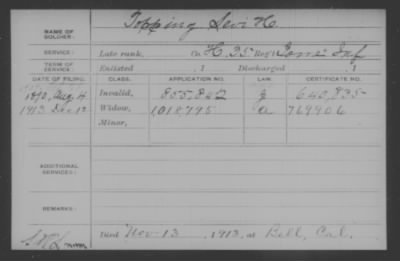 NAME OF SOLDIER: Topping Levi H.
SERVICE: Late rank, Co. H, 25 Reg't Conn Inf
TERM OF SERVICE: Enlisted , 1 Discharged , 1
DATE OF FILING. CLASS. APPLICATION NO. LAW CERTIFICATE NO.
1890, Aug 4 Invalid, 855,842 g 640,835
1913 Dec 12 Widow, 1,018,795 a 769906
Minor,
ADDITIONAL SERVICES:
REMARKS:
Died Nov 13, 1913, at Bell, Cal.